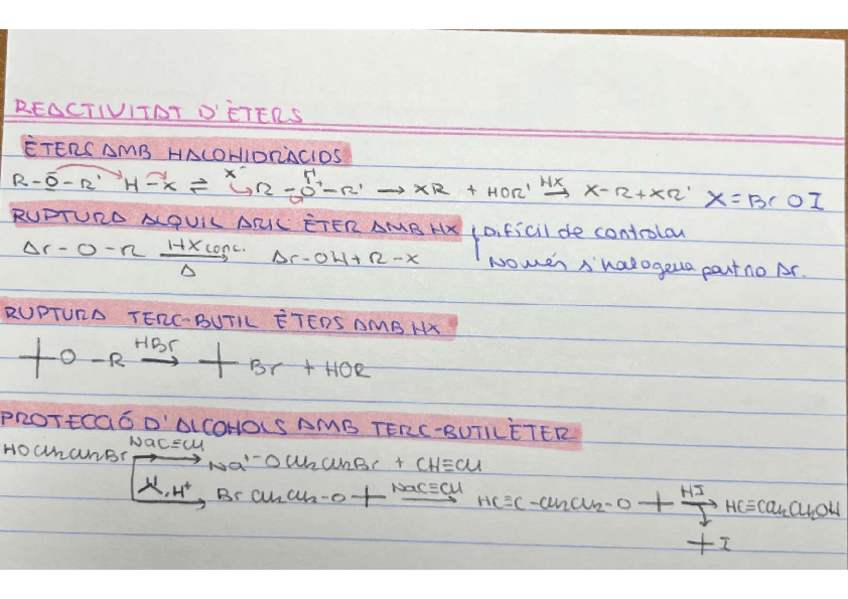 REACTIVITAT D'ÈTERS
ÈTERS AMB HALOHIDRÀCIDS
R-Ö-R' H-X ⇌ X⁻ R-O⁺(H)-R' → XR + HOR' HX→ X-R+XR' X=Br O I
RUPTURA ALQUIL ARIL ÈTER AMB HX Difícil de controlar
Ar-O-R HX conc. → Δ Ar-OH+R-X Només s'halogena part no Ar.
RUPTURA TERC-BUTIL ÈTERS AMB HX
O-R HBr → Br + HOR
PROTECCIÓ D'ALCOHOLS AMB TERC-BUTILÈTER
HOCH2CH2Br NaC≡CH → Na⁺⁻OCH2CH2Br + CH≡CH
, H⁺ → BrCH2CH2-O NaC≡CH → HC≡C-CH2CH2-O HI → HC≡CCH2CH2OH
I